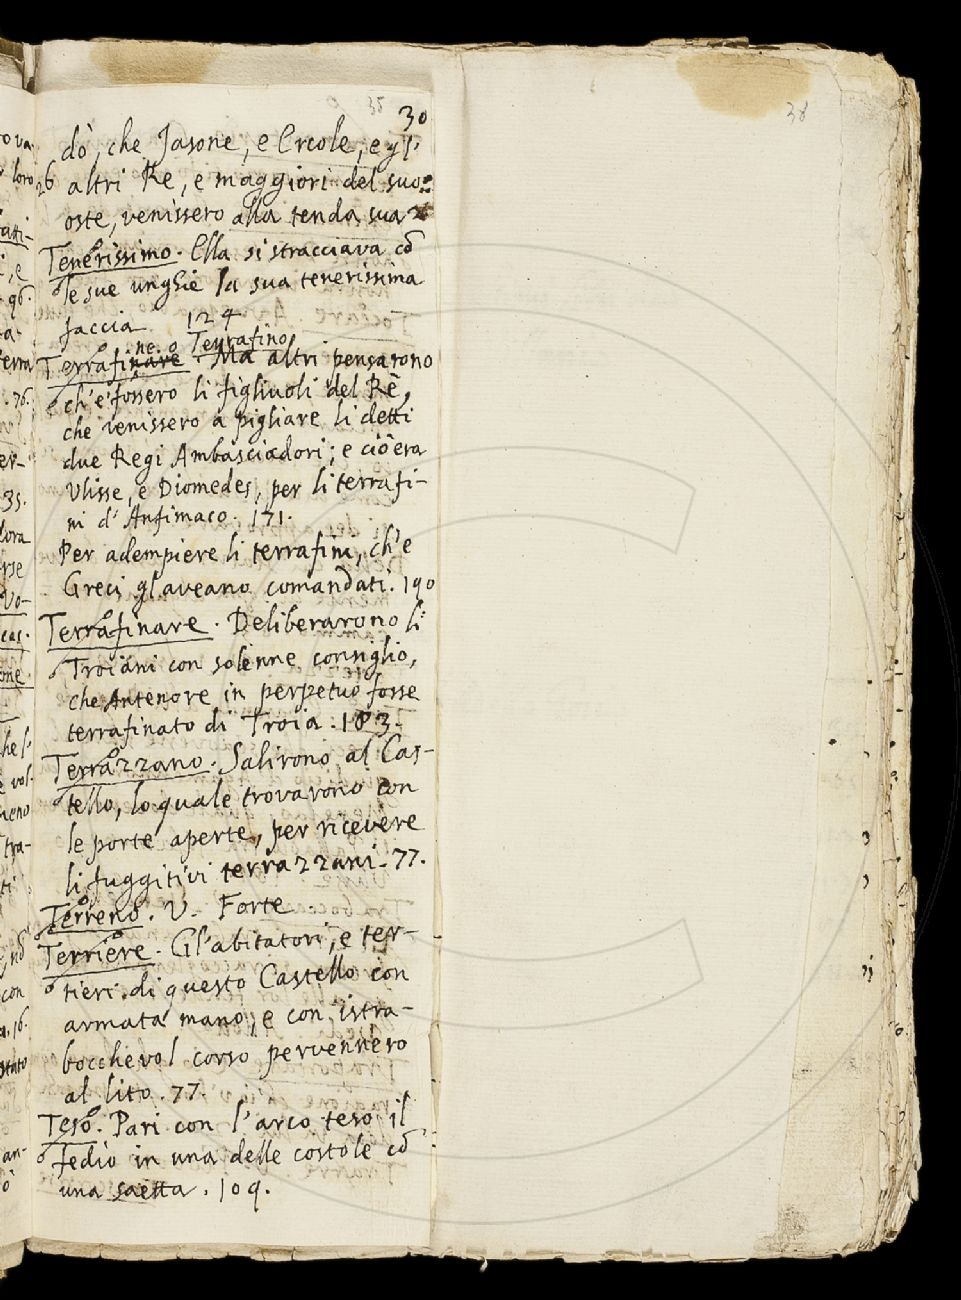 35
30
38
dò, che Jasone, e Ercole, e gl'
26 altri Re, e maggiori del suo
oste, venissero alla tenda sua
Tenerissimo. Ella si stracciava cō
le sue unghie la sua tenerissima
faccia. 124
ne. o Terrafino
Terrafinare. Ma altri pensarono
ch'e' fossero li figliuoli del Rè,
che venissero a pigliare li detti
due Regi Ambasciadori; e ciò era
Ulisse, e Diomedes, per li terrafi-
ni d'Anfimaco. 171.
Per adempiere li terrafini, ch'e
Greci gl'aveano comandati. 190
Terrafinare. Deliberarono li
Troiani con solenne consiglio,
che Antenore in perpetuo fosse
terrafinato di Troia. 183.
Terrazzano. Salirono al Cas-
tello, lo quale trovarono con
le porte aperte, per ricevere
li fuggitivi terrazzani. 77.
Terreno. V. Forte
Terriere. Gl'abitatori, e ter-
rieri di questo Castello con
armata mano, e con istra-
bocchevol corso pervennero
al lito. 77.
Teso. Pari con l'arco teso il
fedio in una delle costole cō
una saetta. 109.